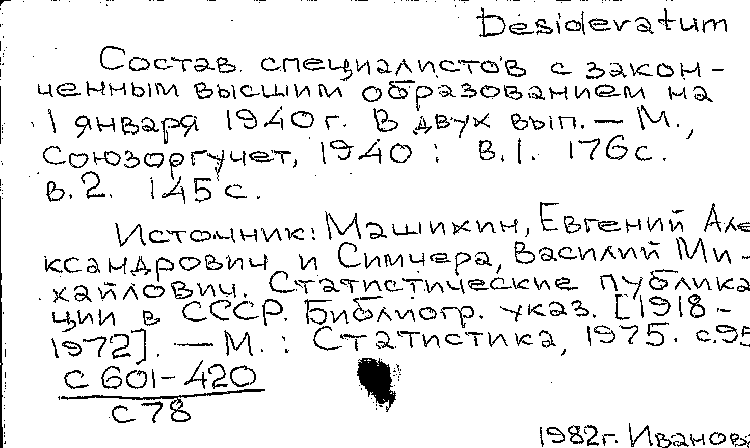 Desideratum
Состав специалистов с закон-
ченным высшим образованием на
1 января 1940 г. В двух вып. — М.,
Союзоргучет, 1940: в.1. 176 с.
в.2. 145 с.
Источник: Машихин, Евгений Але
ксандрович и Симчера, Василий Ми-
хайлович. Статистические публика
ции в СССР. Библиогр. указ. [1918-
1972]. — М.: Статистика, 1975. с.95
с 601-420
с 78
1982г. Иванова